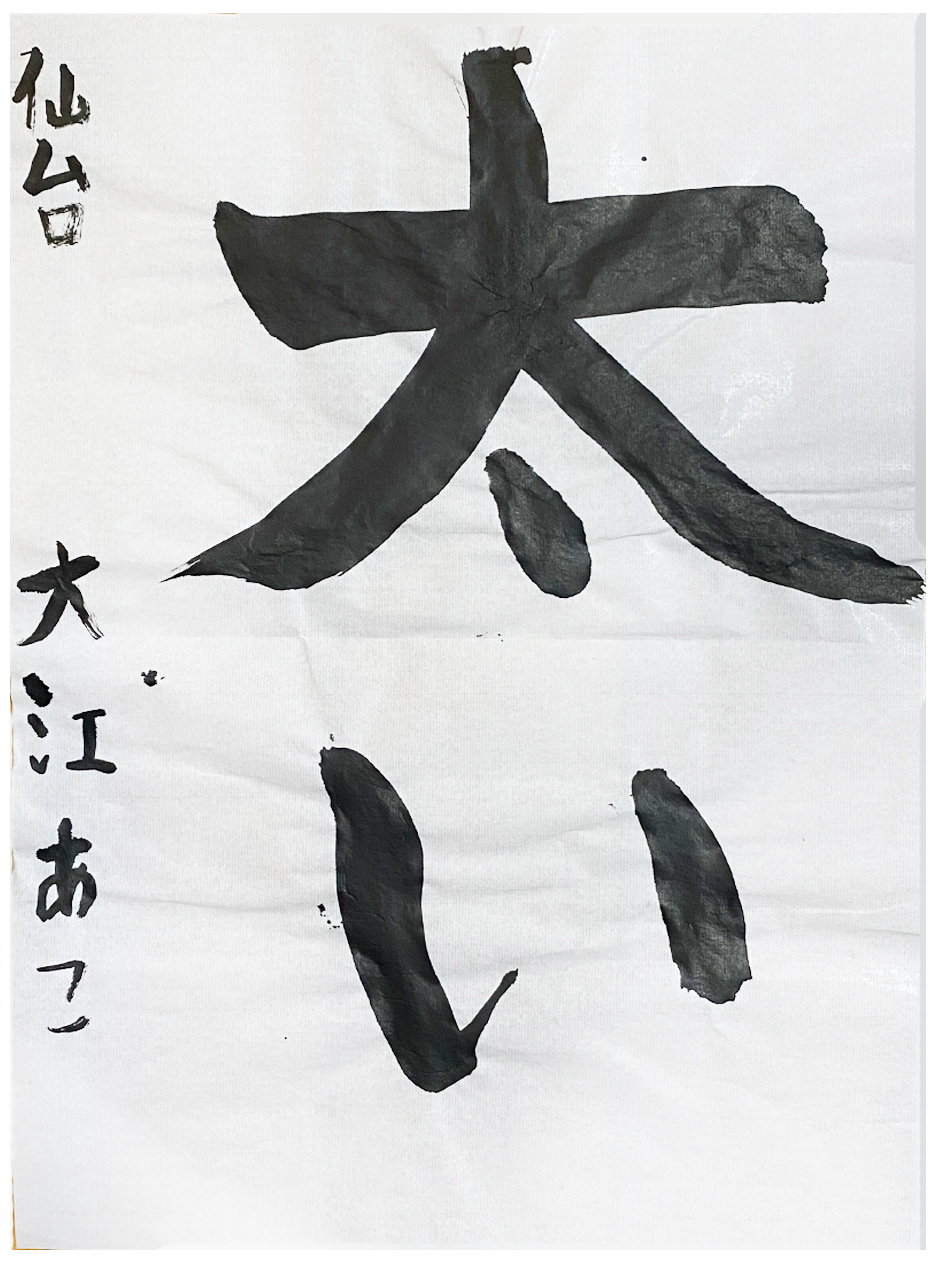 太い
仙台 大江あこ